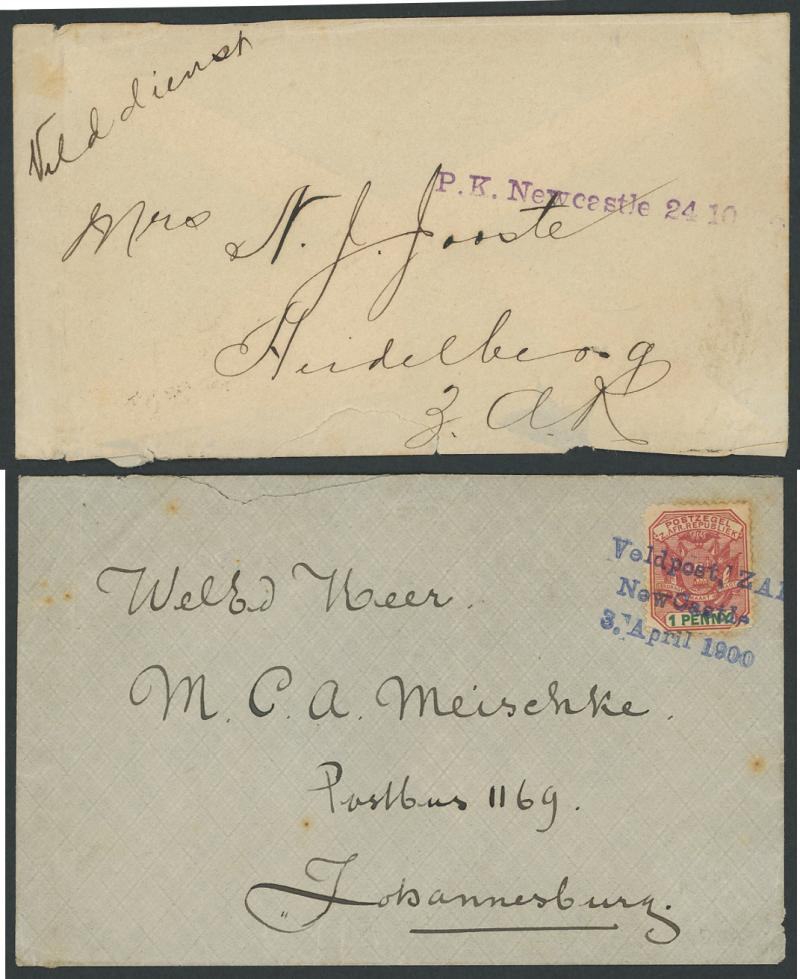 Velddienst
P. K. Newcastle 24 10
Mrs N. J. Jooste
Heidelberg
Z. A. R
POSTZEGEL
Z. AFR. REPUBLIEK
1 PENNY
Veldpost, ZAR
NewCastle
3. April 1900
WelEd Heer.
M. C. A. Meischke.
Postbus 1169.
Johannesburg.